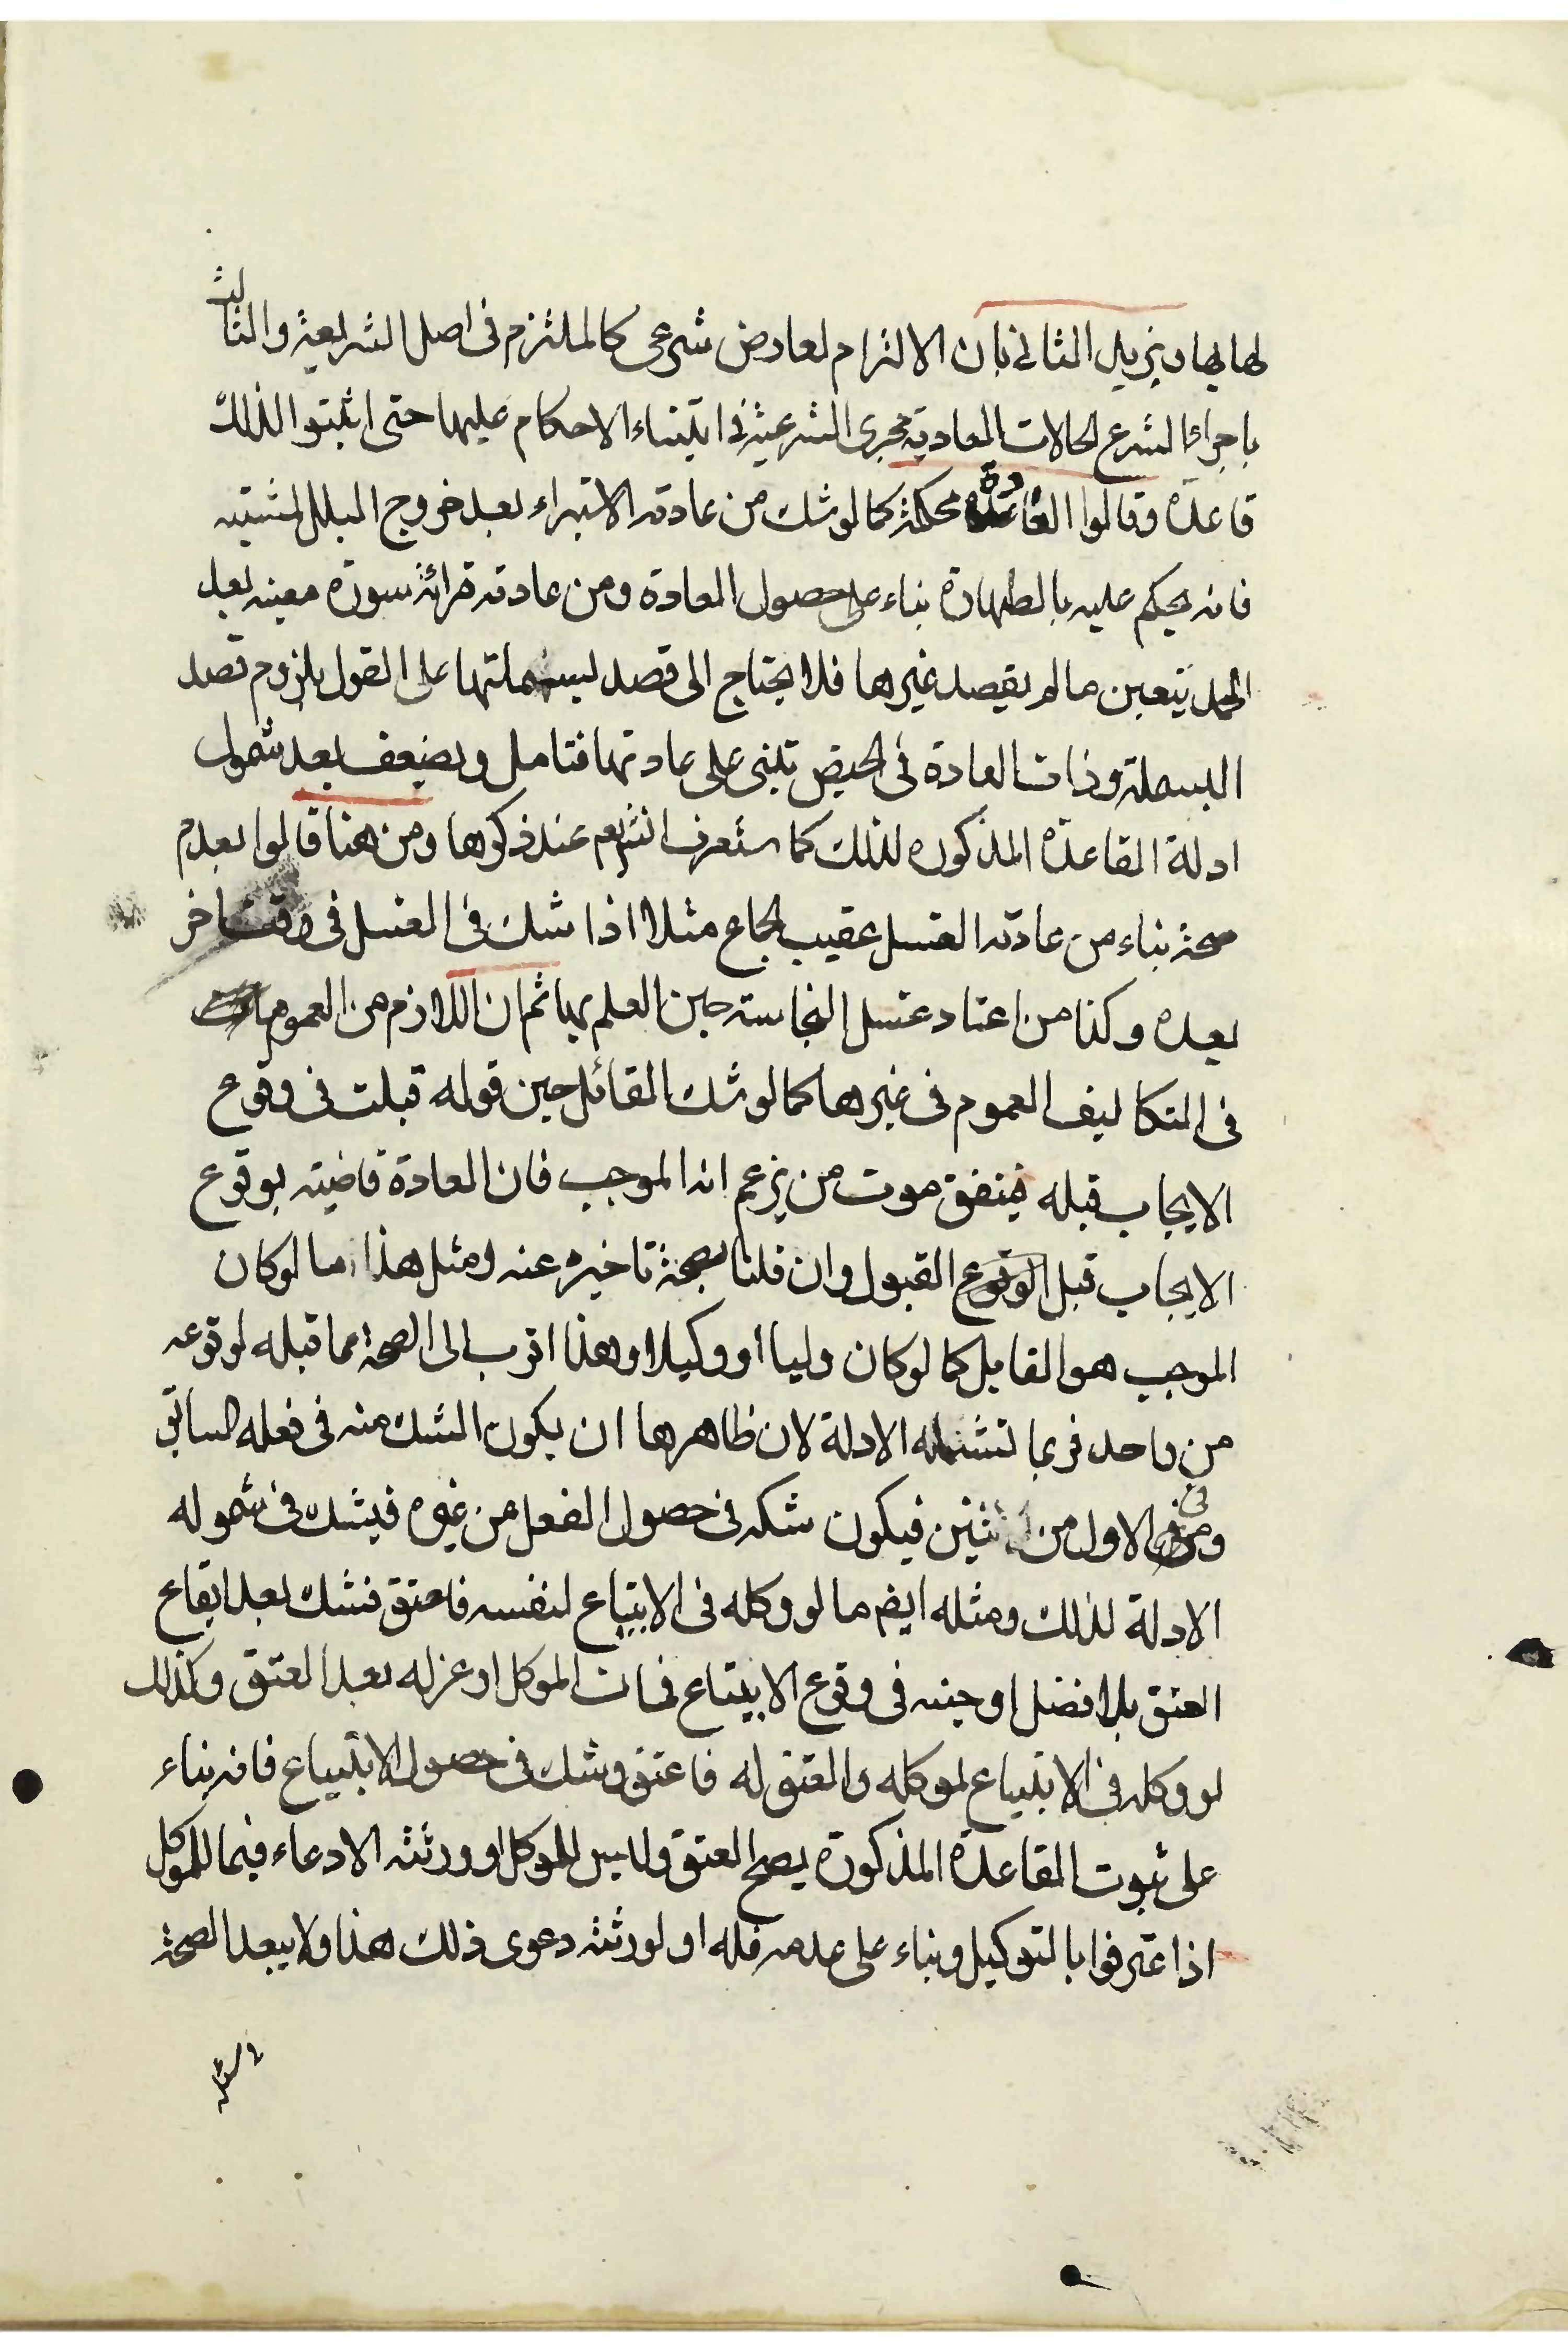 لها بها ويزيل الثاني بان الالتزام لعارض شرعى كالملتزم فى اصل الشريعة والثالث
باجراء الشرع الحالات العادية مجرى الشرعية فى ابتناء الاحكام عليها حتى اثبتوا لذلك
قاعدة وقالوا العادة محكمة كما لو شك من عادته الاستبراء بعد خروج البلل المشتبه
فانه يحكم عليه بالطهارة بناء على حصول العادة ومن عادته قرائة سورة معينه بعد
الحمد يتعين مالم يقصد غيرها فلا يحتاج الى قصد لبسملتها على القول بلزوم قصد
البسملة وذات العادة فى الحيض تبنى على عادتها فتامل ويضعف بعد شمول
ادلة القاعدة المذكوره لذلك كما ستعرف انشهم عند ذكرها ومن هنا قالوا بعدم
صحة بناء من عادته الغسل عقيب الجماع مثلا اذا شك فى الغسل فى وقت اخر
بعده وكذا من اعتاد غسل النجاسته حين العلم بها ثم ان اللازم من العموم
فى التكاليف العموم فى غيرها كما لو شك القائل حين قوله قبلت فى وقوع
الايجاب قبله فيتفق موت من يزعم انه الموجب فان العادة قاضيته بوقوع
الايجاب قبل الوقوع القبول وان قلنا بصحة تاخيره عنه ومثل هذا ما لو كان
الموجب هو القابل كما لو كان وليا او وكيلا وهذا اقرب الى الصحة مما قبله لوقوعه
من واحد فربما تشتمله الادلة لان ظاهرها ان يكون الشك منه فى فعله السابق
وفى الاول من اثنين فيكون شكه فى حصول الفعل من غيره فيشك فى شموله
الادلة لذلك ومثله ايضم ما لو وكله فى الابتياع لنفسه فاعتق فشك بعد ايقاع
العتق بلا فضل او حينه فى وقوع الابيتاع فمات الموكل او عزله بعد العتق وكذلك
لو وكله فى الابتياع لموكله والعتق له فاعتق وشك فى حصول الابتياع فانه بناء
على ثبوت القاعدة المذكورة يصح العتق وليس للموكل او ورثته الادعاء فيما للموكل
اذا عترفوا بالتوكيل وبناء على عدمه فله او لورثته دعوى ذلك هذا ولا يبعد الصحة